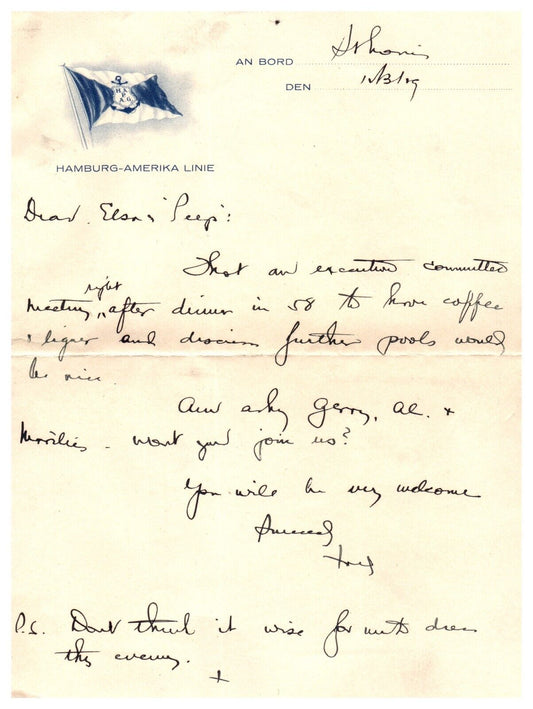 AN BORD St Louis
DEN 12/3/29
H.A.P.A.G.
HAMBURG-AMERIKA LINIE
Dear Elsa & "Peeps":
That an executive committee
right
meeting, after dinner in 58 to have coffee
& liquer and discuss further pools would
be nice.
Am asking Gerry, Al. &
- wont you join us?
You will be very welcome
Sincerely
P.S. Dont think it wise for me to dress
this evening.